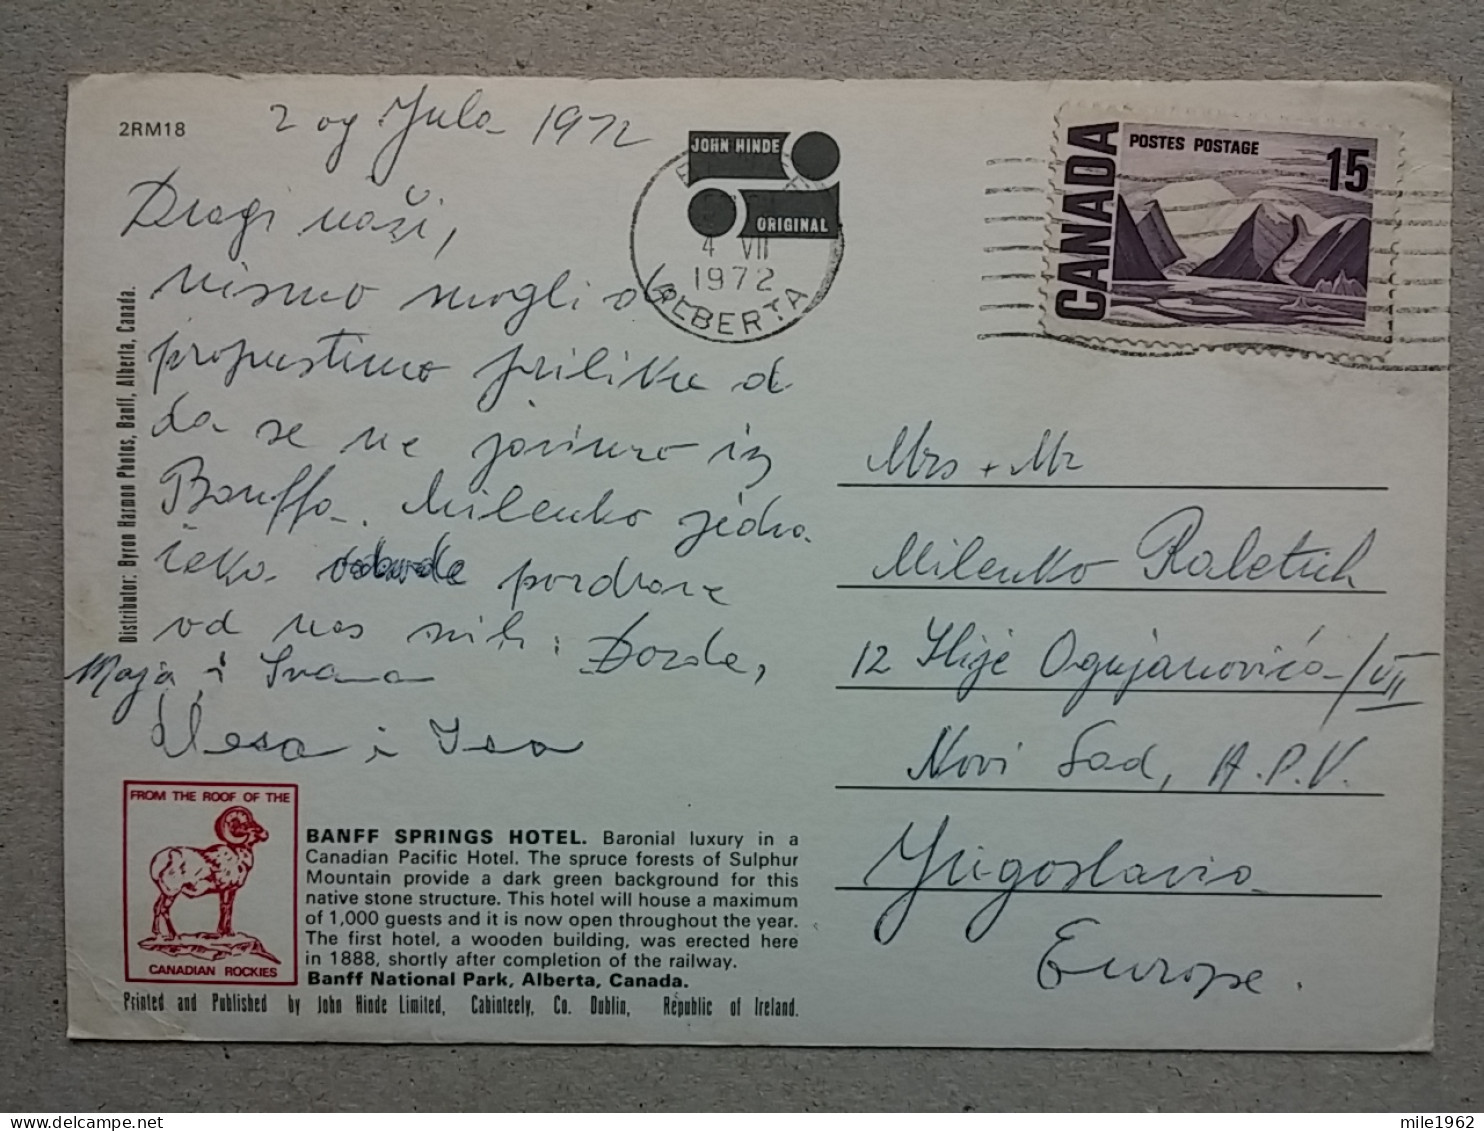 2RM18
2 og Jula 1972
JOHN HINDE
ORIGINAL
4 VII
1972
ALBERTA
CANADA
POSTES POSTAGE
15
Dragi naši,
nismo mogli da
propustimo priliku a
da se ne javimo iz
Banffa. Milenko jedva
čeka pozdrave
od nas svih: Đorđe,
Maja i Ivana
Vesa i Isa
Mrs + Mr
Milenko Raletich
12 Ilije Ognjanovića/VII
Novi Sad, A.P.V.
Yugoslavia
Europe.
Distributor: Byron Harmon Photos, Banff, Alberta, Canada.
FROM THE ROOF OF THE
CANADIAN ROCKIES
BANFF SPRINGS HOTEL. Baronial luxury in a
Canadian Pacific Hotel. The spruce forests of Sulphur
Mountain provide a dark green background for this
native stone structure. This hotel will house a maximum
of 1,000 guests and it is now open throughout the year.
The first hotel, a wooden building, was erected here
in 1888, shortly after completion of the railway.
Banff National Park, Alberta, Canada.
Printed and Published by John Hinde Limited, Cabinteely, Co. Dublin, Republic of Ireland.
mile1962